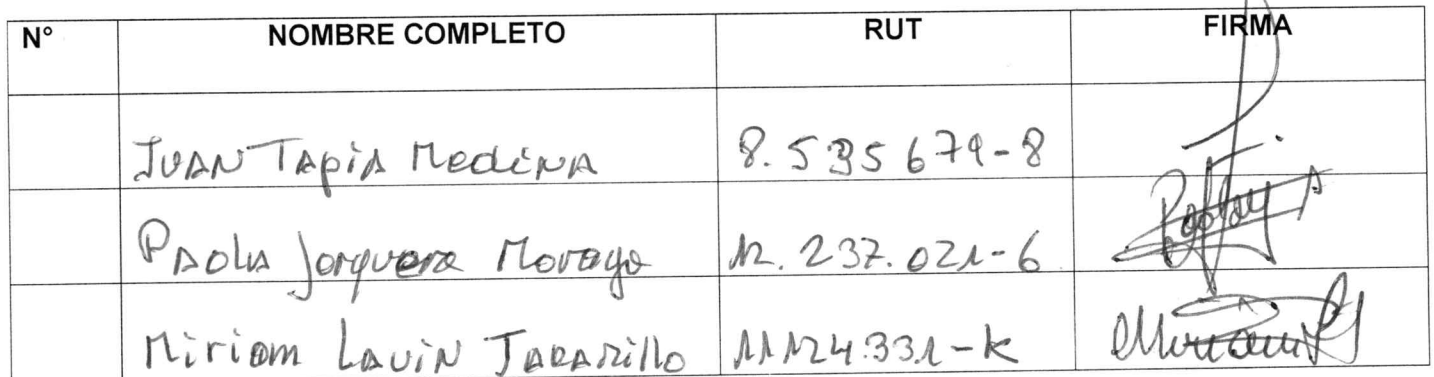 N° NOMBRE COMPLETO RUT FIRMA
Juan Tapia Medina 8.535679-8
Paola Jorquera Moraga 12.237.021-6
Miriam Lavin Jaramillo 11124.331-k